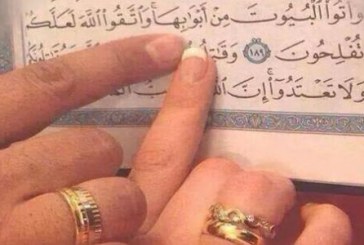 وَأْتُوا۟ ٱلْبُيُوتَ مِنْ أَبْوَٰبِهَا ۚ وَٱتَّقُوا۟ ٱللَّهَ لَعَلَّكُمْ
تُفْلِحُونَ ١٨٩ وَقَٰتِلُوا۟
وَلَا تَعْتَدُوٓا۟ ۚ إِنَّ ٱللَّهَ